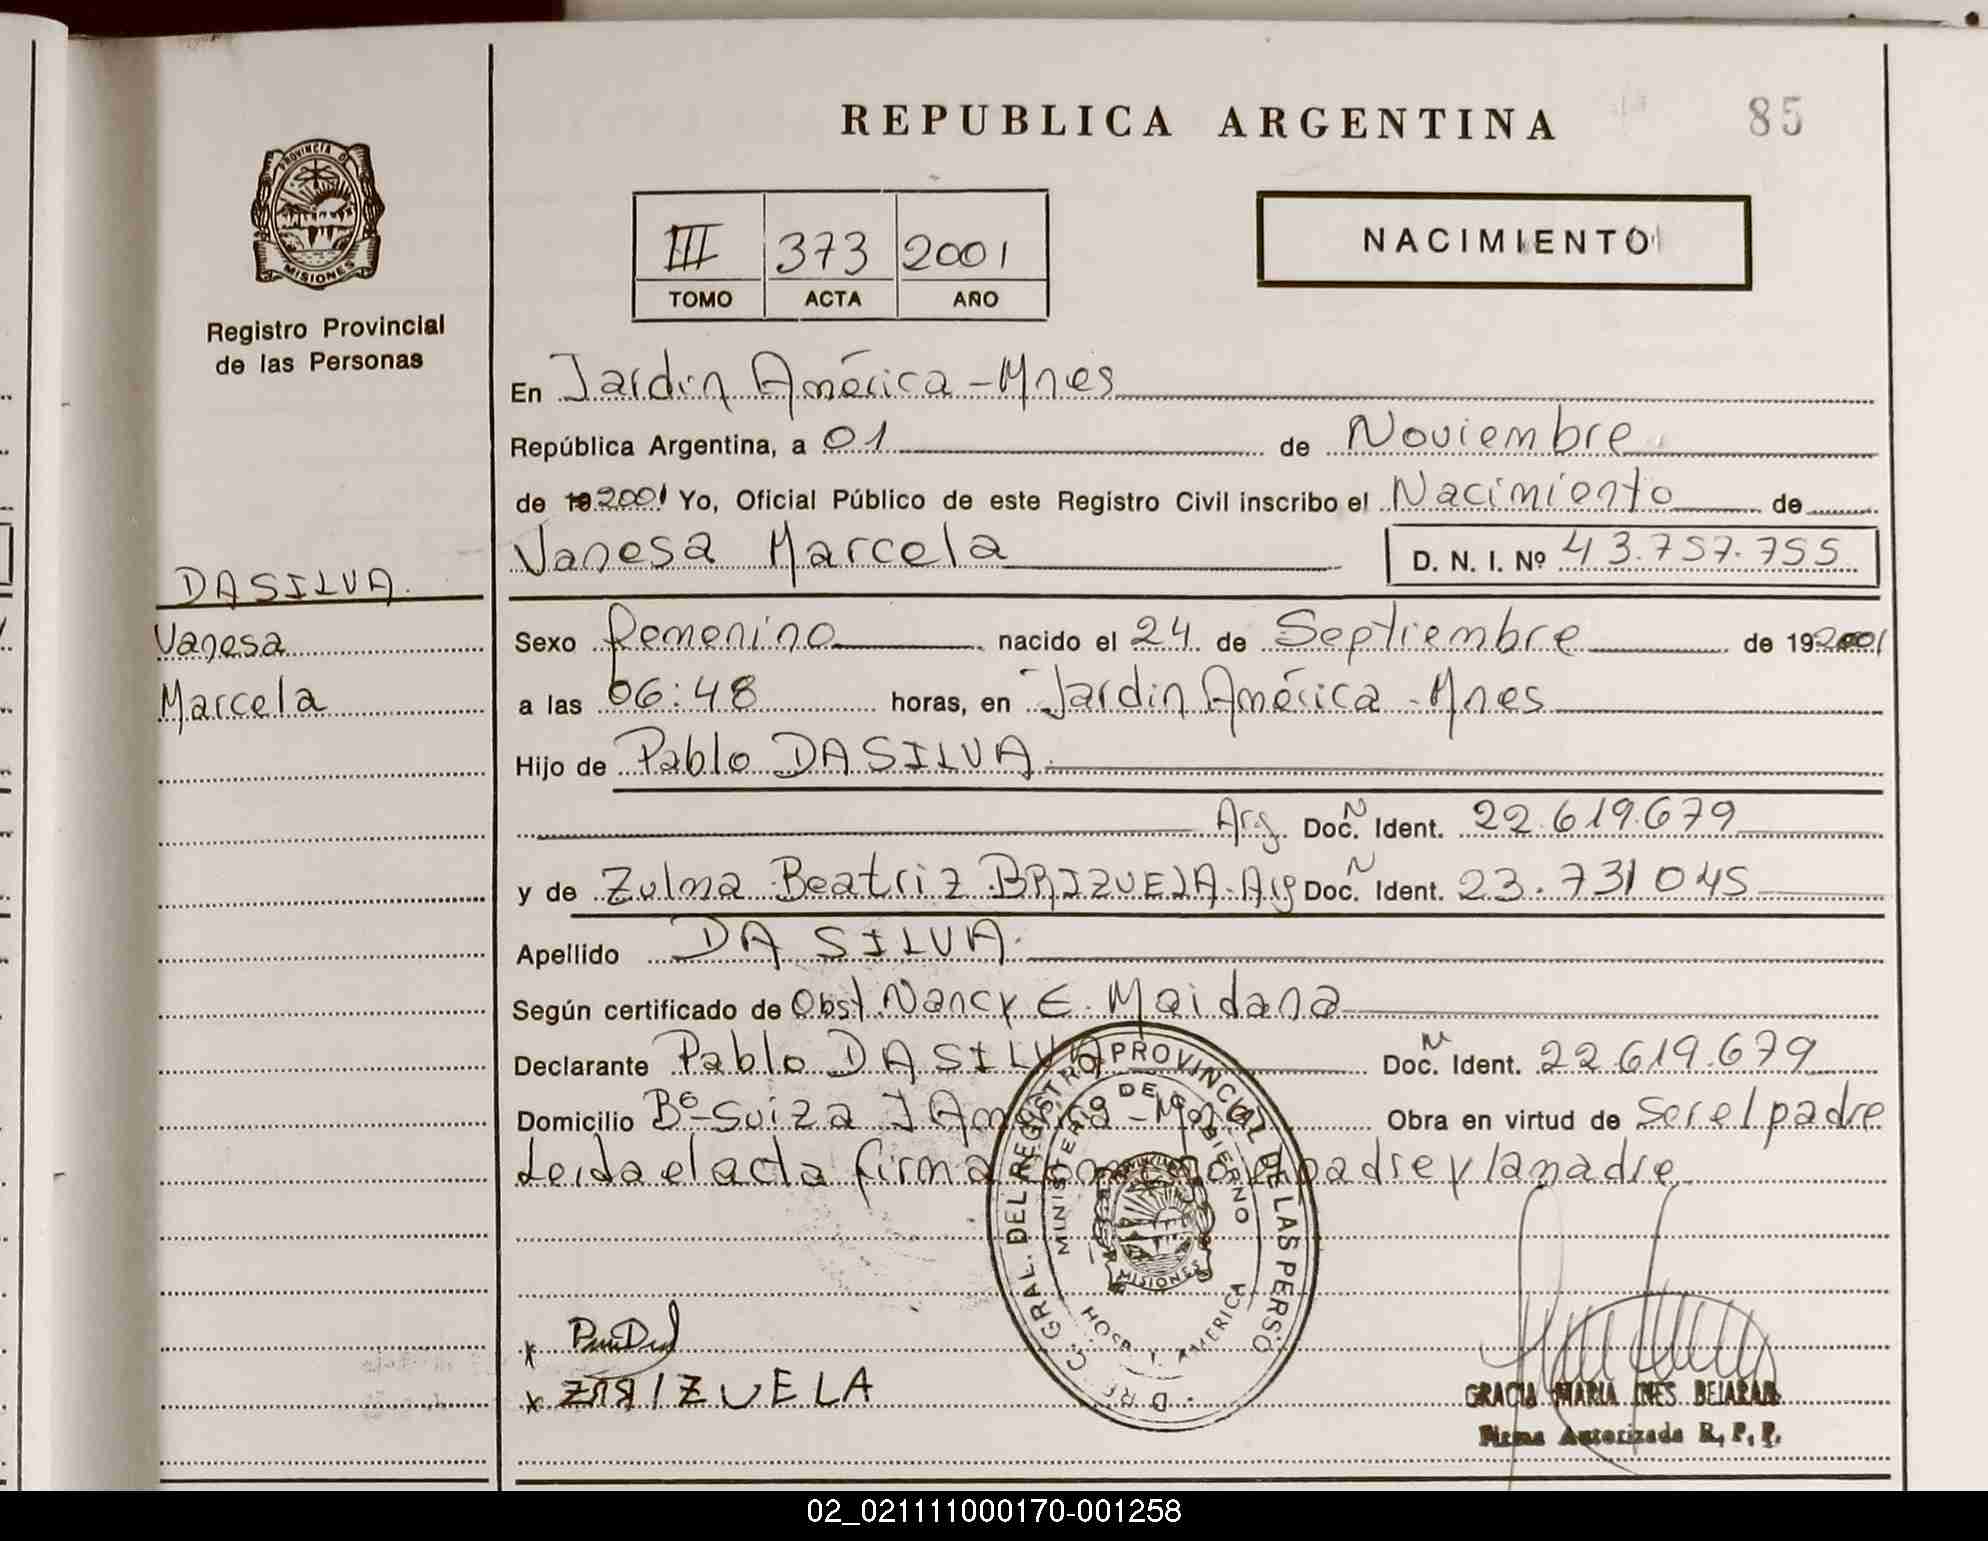 REPUBLICA ARGENTINA
85
PROVINCIA DE
MISIONES
Registro Provincial
de las Personas
III 373 2001
TOMO ACTA AÑO
NACIMIENTO
En Jardin América - Mnes
República Argentina, a 01 de Noviembre
de 19 2001 Yo, Oficial Público de este Registro Civil inscribo el Nacimiento de
Vanesa Marcela D. N. I. Nº 43.757.755
DA SILVA.
Vanesa
Marcela
Sexo femenino nacido el 24 de Septiembre de 19 2001
a las 06:48 horas, en Jardin América - Mnes
Hijo de Pablo DA SILVA.
Arg. Doc. N Ident. 22.619.679
y de Zulma Beatriz BRIZUELA. Arg Doc. N Ident. 23.731 045
Apellido DA SILVA.
Según certificado de Obst. Nancy E. Maidana
Declarante Pablo DA SILVA Doc. N Ident. 22.619.679
Domicilio Bº - Suiza J América - Mnes Obra en virtud de ser el padre
Leida el acta firma conmigo el padre y la madre
DIREC. GRAL. DEL REGISTRO PROVINCIAL DE LAS PERSO
MINISTERIO DE GOBIERNO
MISIONES
HOSP. J. AMERICA
x
x BRIZUELA
GRACIA MARIA INES BEJARAN
Firma Autorizada R. P. P.
02_021111000170-001258